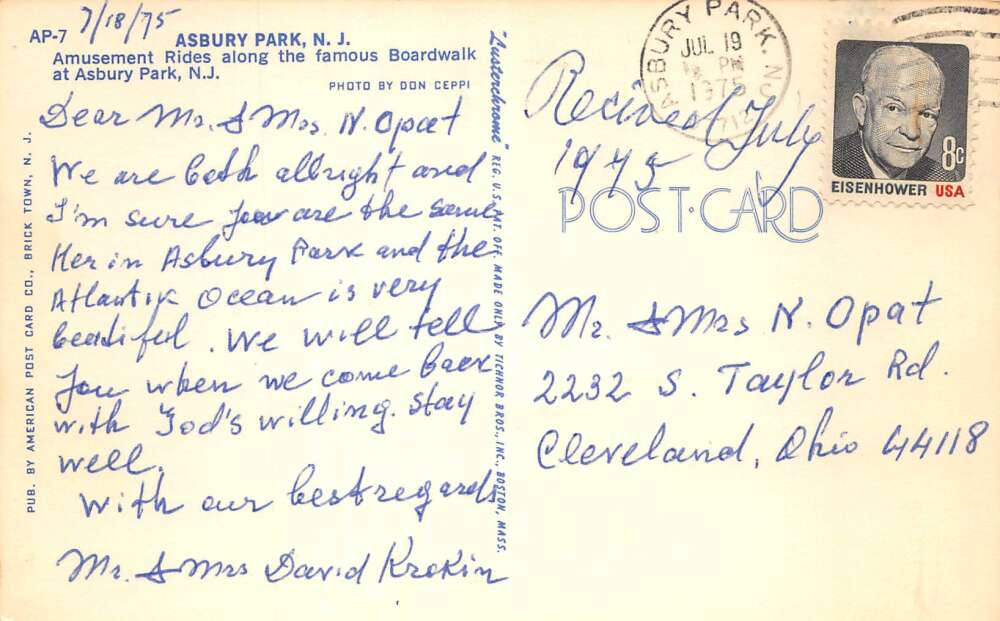 7/18/75
AP-7 ASBURY PARK, N. J.
Amusement Rides along the famous Boardwalk
at Asbury Park, N.J.
PHOTO BY DON CEPPI
Dear Mr. & Mrs. N. Opat
We are both allright and
I'm sure you are the same
Her in Asbury Park and the
Atlantik Ocean is very
beatiful. We will tell
you when we come back
with God's willing. stay
well.
With our best regards
Mr. & Mrs David Krokin
PUB. BY AMERICAN POST CARD CO., BRICK TOWN, N. J.
"Lusterchrome" REG. U. S. PAT. OFF. MADE ONLY BY TICHNOR BROS., INC., BOSTON, MASS.
ASBURY PARK, N.
JUL 19
PM
1975
EISENHOWER USA
8c
Recived July
1975
POST CARD
Mr. & Mrs N. Opat
2232 S. Taylor Rd.
Cleveland, Ohio 44118